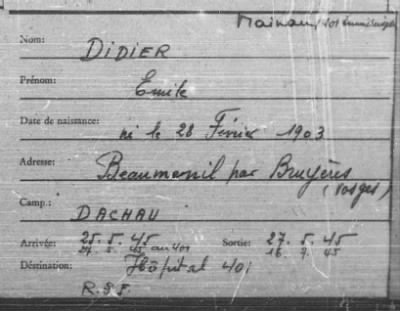 Mainau / 401
Nom: DIDIER
Prénom: Emile
Date de naissance: né le 28 Février 1903
Adresse: Beaumenil par Bruyères
(Vosges)
Camp.: DACHAU
Arrivée: 25. 5. 45 Sortie: 27. 5. 45
27. 5. 45 au 401 16. 7. 45
Déstination: Hôpital 401